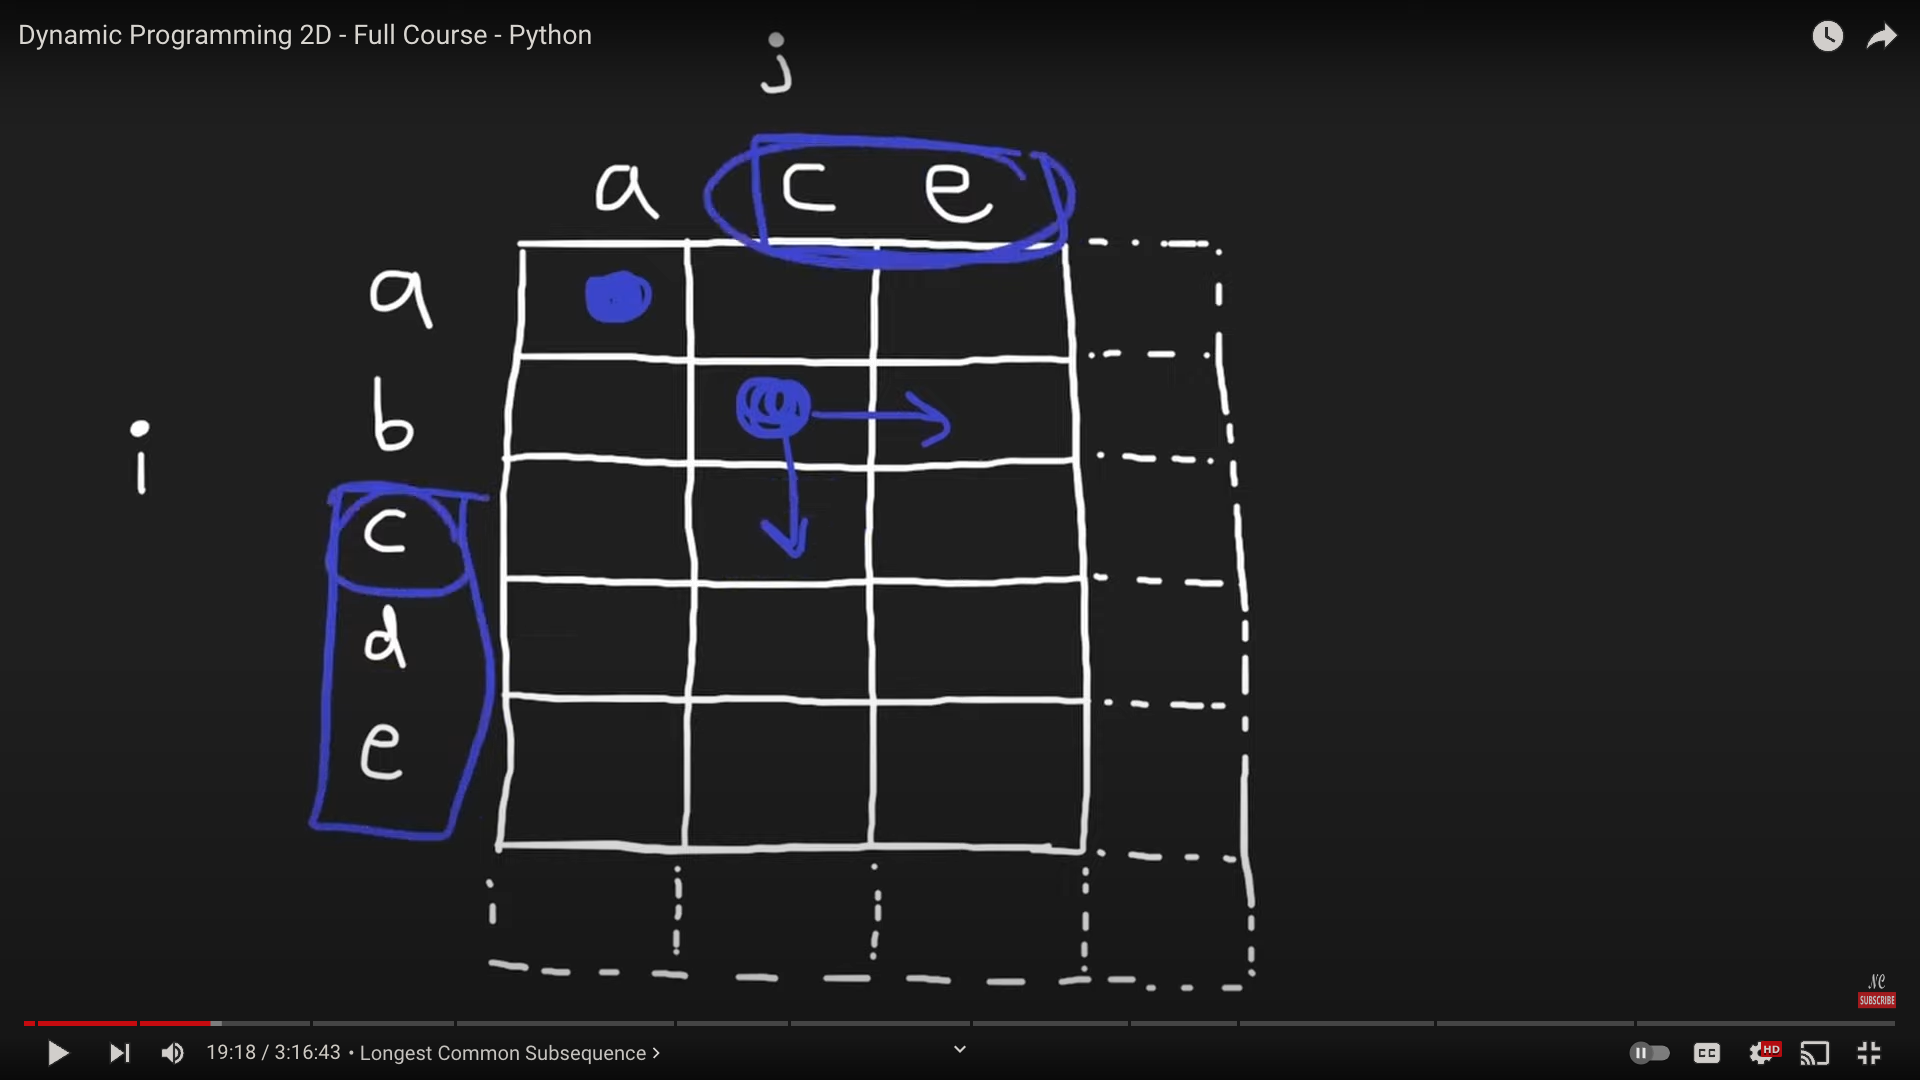 Dynamic Programming 2D - Full Course - Python
j
a c e
a
b
i
c
d
e
NC
SUBSCRIBE
19:18 / 3:16:43 • Longest Common Subsequence >
CC
HD